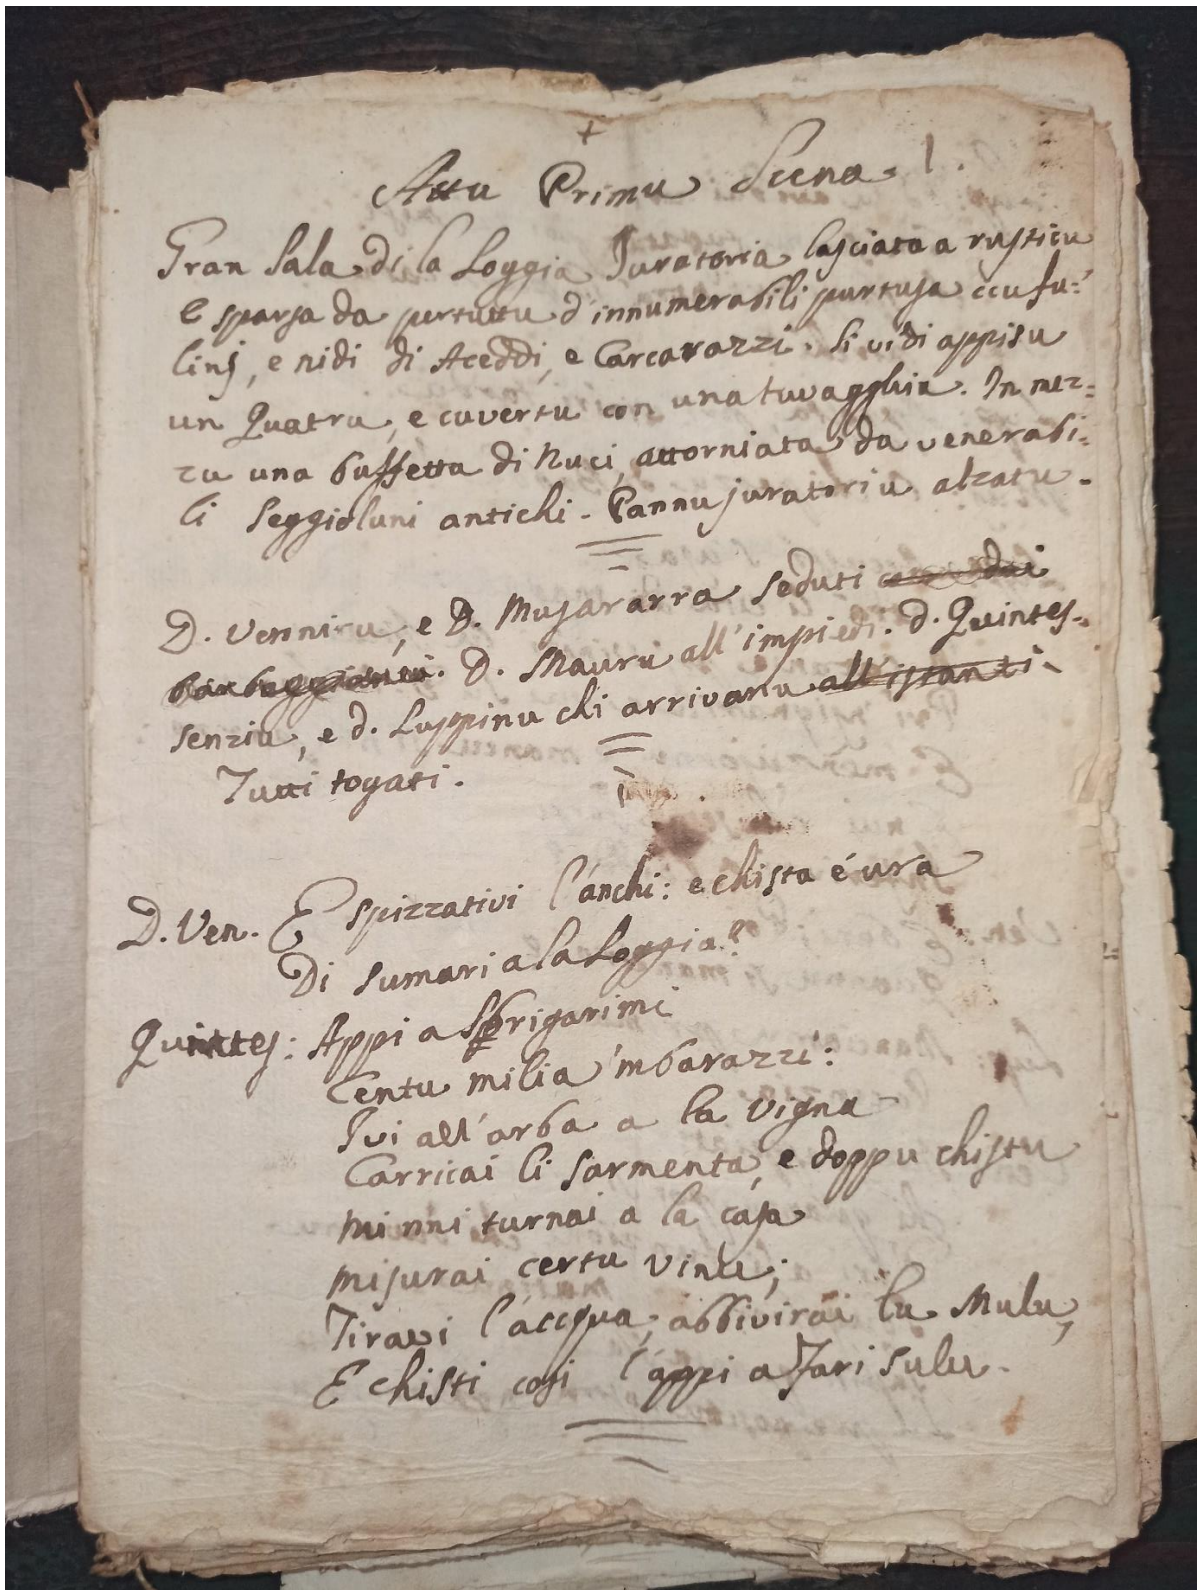 +
Attu Primu Scena. 1.
Gran Sala di la Loggia Juratoria lasciata a rusticu
e sparsa da pertuttu d'innumerabili purtusa ccu fu=
linj, e nidi di Aceddi, e Carcarazzi. Si vidi appisu
un Quatru, e cuvertu con una tuvagghia. In mez=
zu una buffetta di Nuci attorniata da venerabi=
li Seggioluni antichi. Pannu juratoriu alzatu.
D. Venniru, e D. Musararra seduti
D. Mauru all'impiedi. d. Quintes=
senziu, e d. Luppinu chi arrivanu all'istanti.
Tutti togati.
D. Ven. E spizzativi l'anchi: e chista é ura
Di sumari a la Loggia?
Quintes: Appi a Sbrigarimi
Centu milia 'mbarazzi:
Ivi all'arba a la vigna
Carricai li sarmenta, e doppu chistu
mi nni turnai a la casa
misurai certu vinu;
Tiravi l'accqua, abbivirai lu Mulu,
E chisti cosi l'appi a Fari sulu.